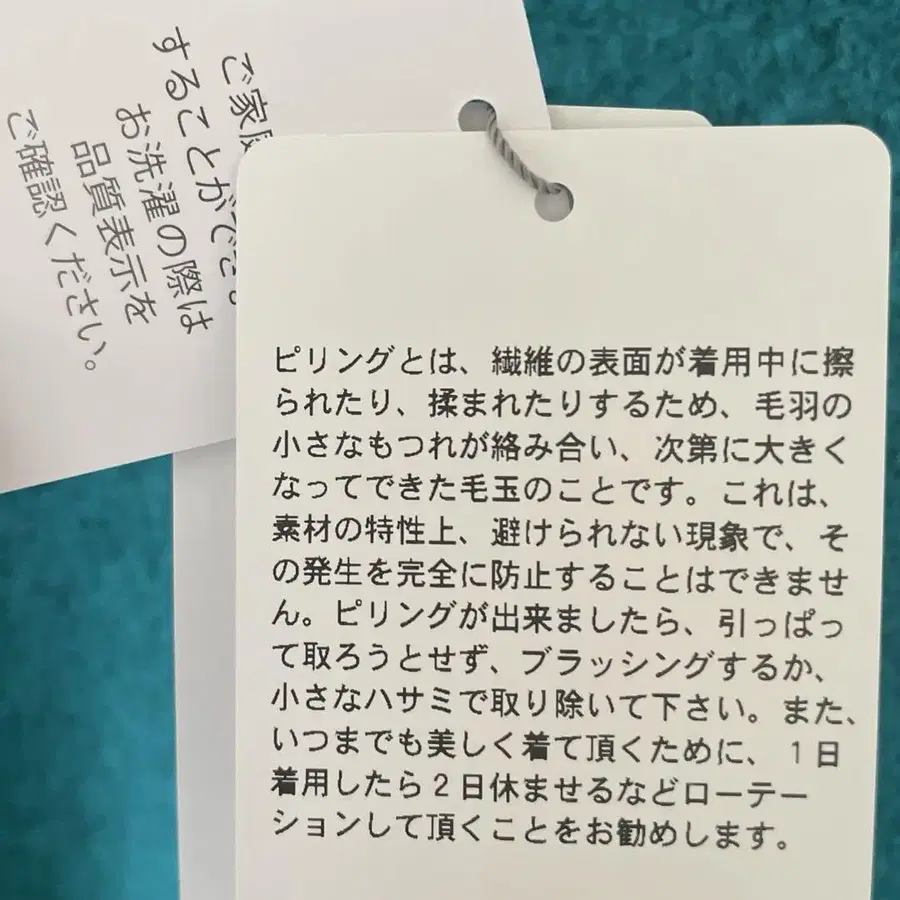 ご家
することができ
お洗濯の際は
品質表示を
ご確認ください。
ピリングとは、繊維の表面が着用中に擦
られたり、揉まれたりするため、毛羽の
小さなもつれが絡み合い、次第に大きく
なってできた毛玉のことです。これは、
素材の特性上、避けられない現象で、そ
の発生を完全に防止することはできませ
ん。ピリングが出来ましたら、引っぱっ
て取ろうとせず、ブラッシングするか、
小さなハサミで取り除いて下さい。また、
いつまでも美しく着て頂くために、1日
着用したら2日休ませるなどローテー
ションして頂くことをお勧めします。